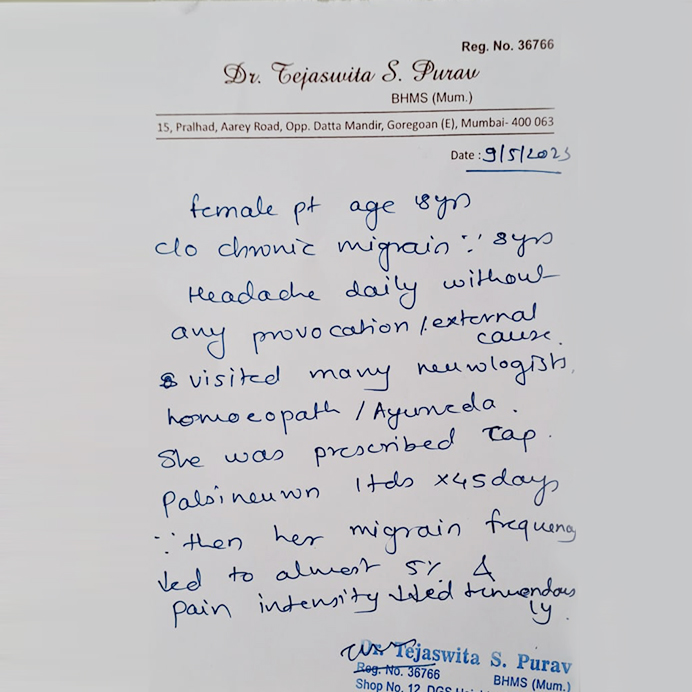 Reg. No. 36766
Dr. Tejaswita S. Purav
BHMS (Mum.)
15, Pralhad, Aarey Road, Opp. Datta Mandir, Goregoan (E), Mumbai- 400 063
Date : 9/5/2023
female pt age 18yrs
c/o chronic migrain ∵ 8yrs
Headache daily without
any provocation / external
cause.
visited many neurologists,
homoeopath / Ayurveda.
She was prescribed Cap.
Palsineuron 1tds x45days
∵ then her migrain frequency
↓ed to almost 5% &
pain intensity ↓↓ed tremendous
ly.
Dr. Tejaswita S. Purav
Reg. No. 36766
BHMS (Mum.)
Shop No. 12, DGS